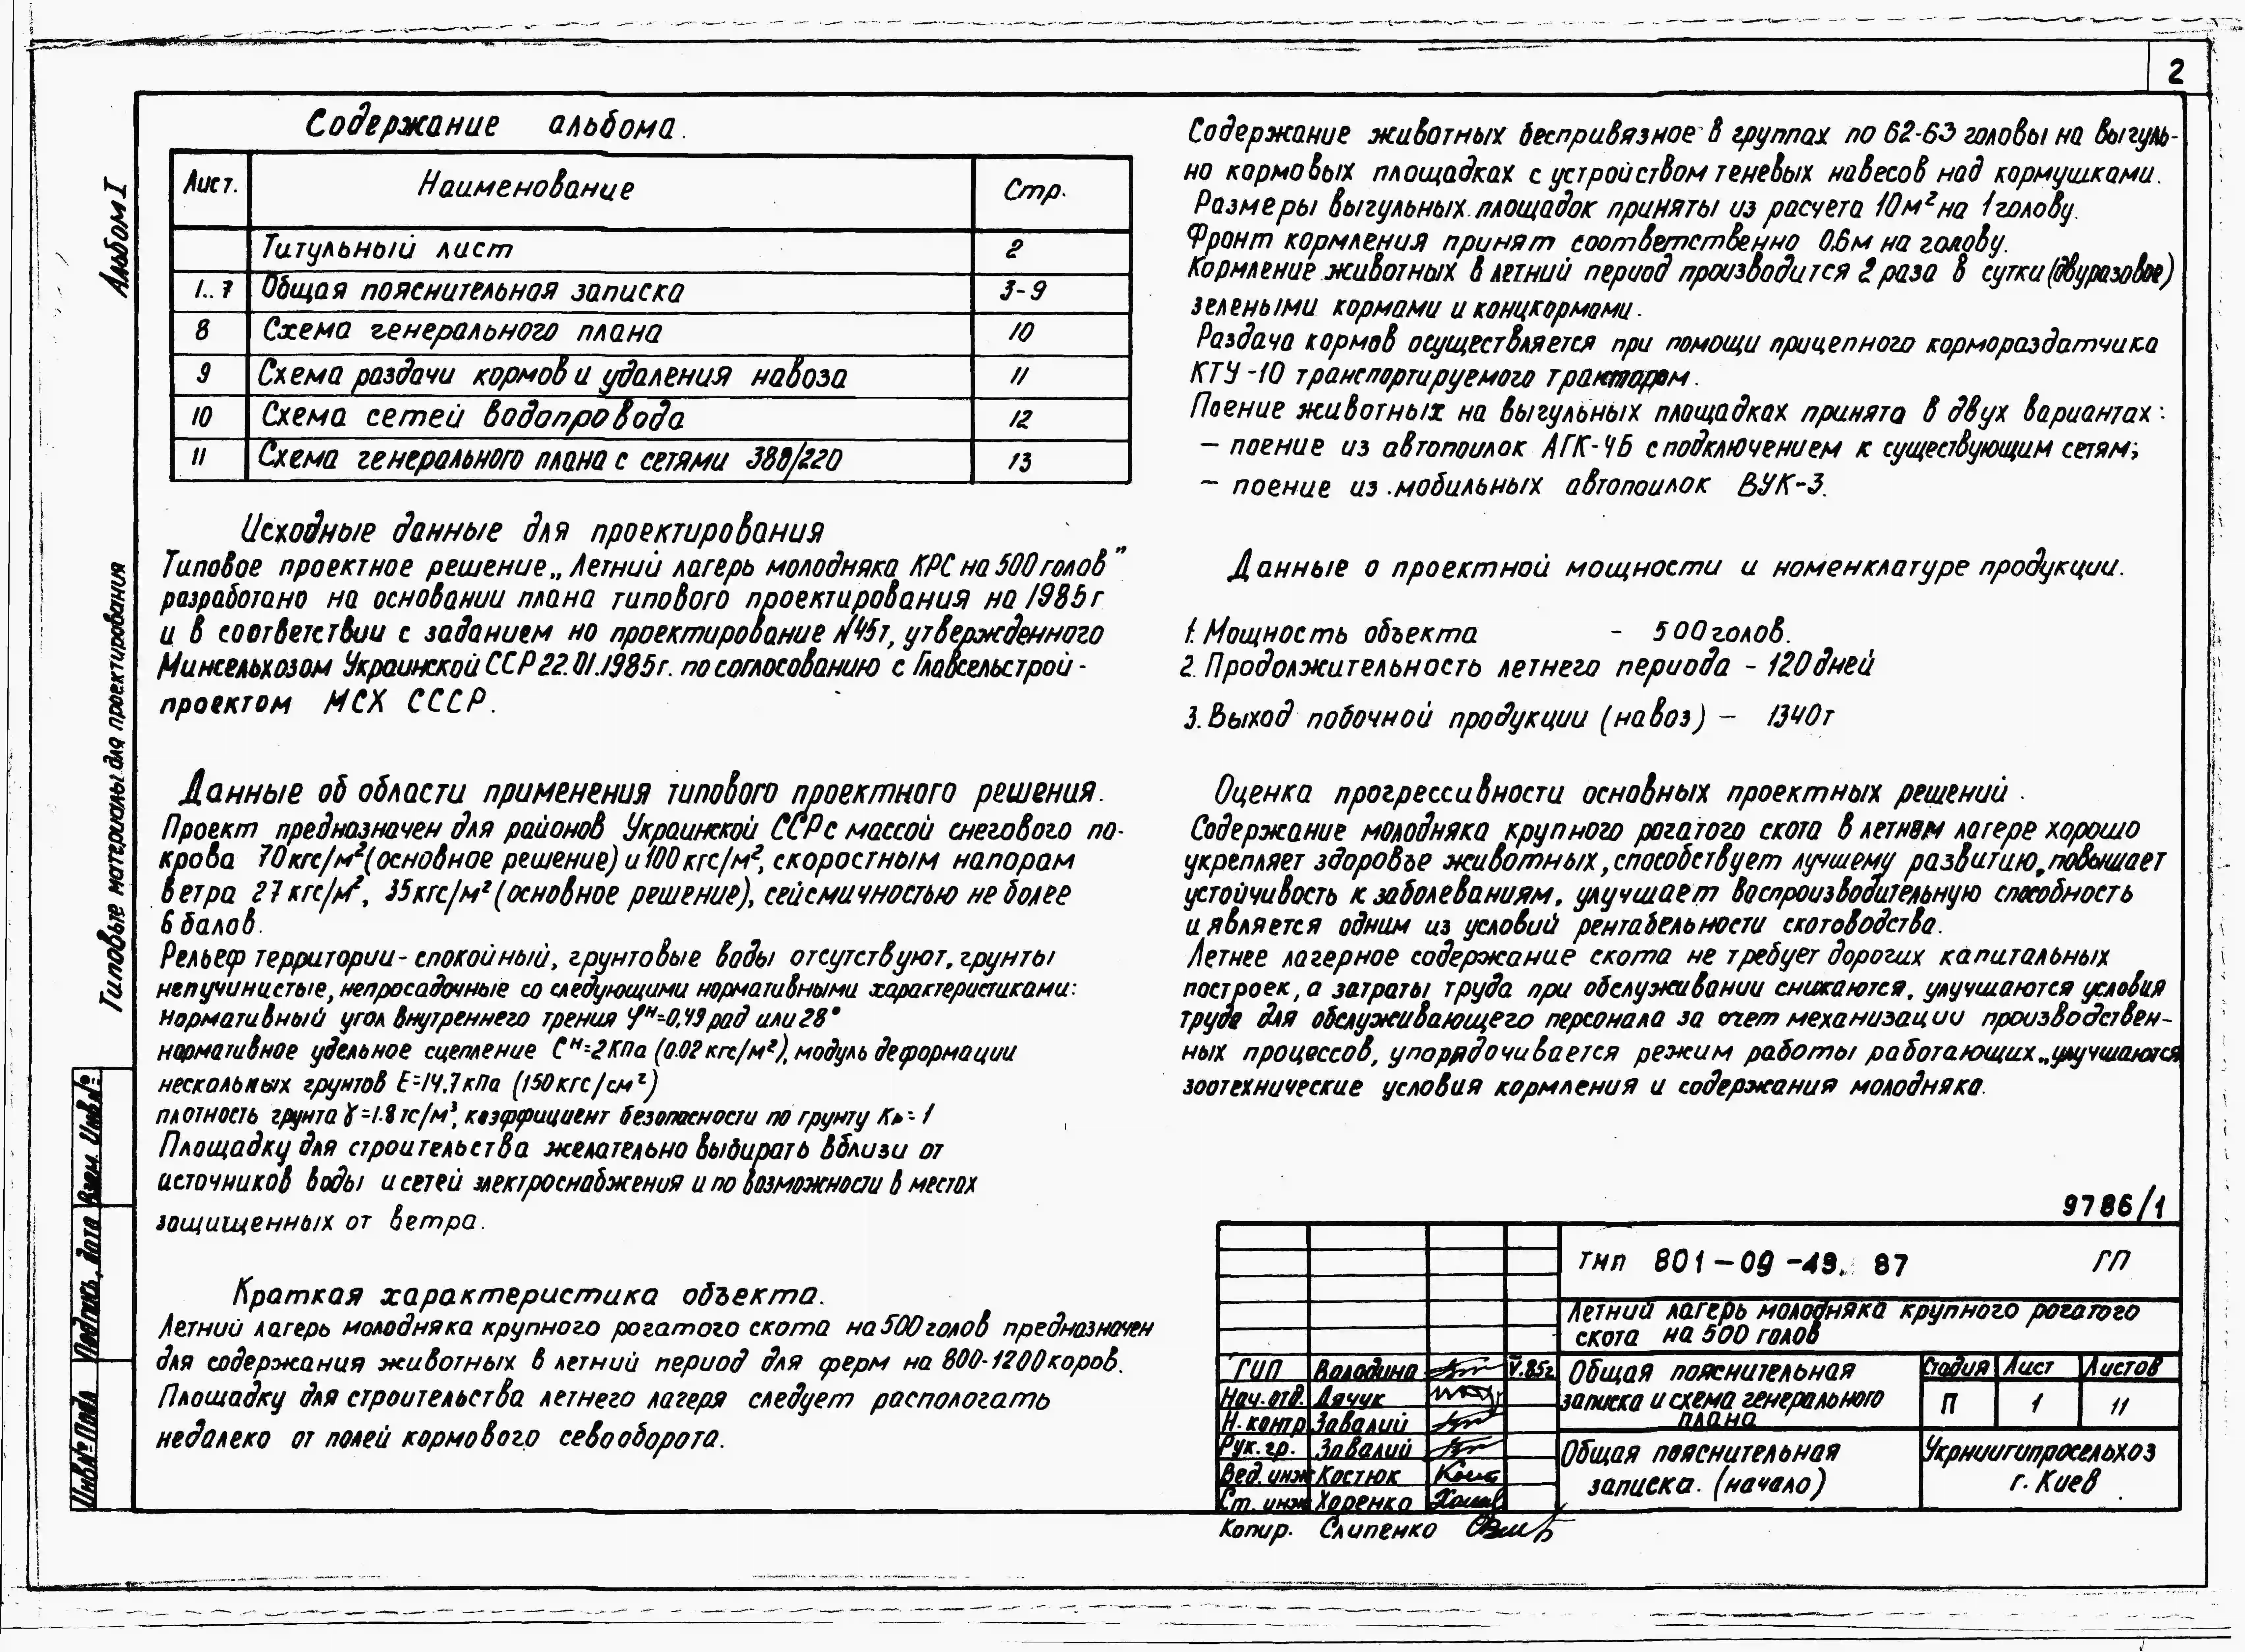 2
Альбом I
Типовые материалы для проектирования
Взам. Инв.№
Подпись, дата
Инв.№ Подл
Содержание альбома.
Лист. Наименование Стр.
Титульный лист 2
1..7 Общая пояснительная записка 3-9
8 Схема генерального плана 10
9 Схема раздачи кормов и удаления навоза 11
10 Схема сетей водопровода 12
11 Схема генерального плана с сетями 380/220 13
Исходные данные для проектирования
Типовое проектное решение „Летний лагерь молодняка КРС на 500 голов"
разработано на основании плана типового проектирования на 1985г
и в соответствии с заданием но проектирование №45т, утвержденного
Минсельхозом Украинской ССР 22.01.1985г. по согласованию с Главсельстрой-
проектом МСХ СССР.
Данные об области применения типового проектного решения.
Проект предназначен для районов Украинской ССР с массой снегового по-
крова 70кгс/м²(основное решение) и 100 кгс/м², скоростным напорам
ветра 27 кгс/м², 35кгс/м² (основное решение), сейсмичностью не более
6 балов.
Рельеф территории- спокойный, грунтовые воды отсутствуют, грунты
непучинистые, непросадочные со следующими нормативными характеристиками:
нормативный угол внутреннего трения φн=0,49 рад или 28°
нормативное удельное сцепление Сн=2КПа (0.02 кгс/м²), модуль деформации
нескальных грунтов Е=14,7кПа (150кгс/см²)
плотность грунта γ=1.8 тс/м³, коэффициент безопасности по грунту К=1
Площадку для строительства желательно выбирать вблизи от
источников воды и сетей электроснабжения и по возможности в местах
защищенных от ветра.
Краткая характеристика объекта.
Летний лагерь молодняка крупного рогатого скота на 500 голов предназначен
для содержания животных в летний период для ферм на 800-1200 коров.
Площадку для строительства летнего лагеря следует распологать
недалеко от полей кормового севооборота.
Содержание животных беспривязное в группах по 62-63 головы на выгуль-
но кормовых площадках с устройством теневых навесов над кормушками.
Размеры выгульных площадок приняты из расчета 10м² на 1 голову.
Фронт кормления принят соответственно 0.6м на голову.
Кормление животных в летний период производится 2 раза в сутки (двуразовое)
зелеными кормами и концкормами.
Раздача кормов осуществляется при помощи прицепного кормораздатчика
КТУ-10 транспортируемого трактором.
Поение животных на выгульных площадках принято в двух вариантах:
– поение из автопоилок АГК-4Б с подключением к существующим сетям;
– поение из мобильных автопоилок ВУК-3.
Данные о проектной мощности и номенклатуре продукции.
1. Мощность объекта - 500 голов.
2. Продолжительность летнего периода - 120 дней
3. Выход побочной продукции (навоз) – 1340т
Оценка прогрессивности основных проектных решений.
Содержание молодняка крупного рогатого скота в летнем лагере хорошо
укрепляет здоровье животных, способствует лучшему развитию, повышает
устойчивость к заболеваниям, улучшает воспроизводительную способность
и является одним из условий рентабельности скотоводства.
Летнее лагерное содержание скота не требует дорогих капитальных
построек, а затраты труда при обслуживании снижаются, улучшаются условия
труда для обслуживающего персонала за счет механизации производствен-
ных процессов, упорядочивается режим работы работающих, улучшаются
зоотехнические условия кормления и содержания молодняка.
9786/1
ТМП 801-09-49. 87 ГП
Летний лагерь молодняка крупного рогатого
скота на 500 голов
ГИП Володина V.85г
Нач. отд. Дячук
Н. контр Завалий
Рук. гр. Завалий
Вед. инж Костюк
Ст. инж Харенко
Общая пояснительная
записка и схема генерального
плана
Стадия Лист Листов
П 1 11
Общая пояснительная
записка. (начало)
Укрниигипросельхоз
г. Киев
Копир. Слипенко